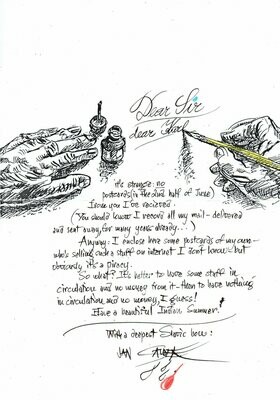 Dear Sir
dear Karl
it's strange: no
postcards (in the 2nd half of June)
from you I've recieved.
(You should know I record all my mail - delivered
and sent away, for many years already...)
Anyway: I enclose here some postcards of my own -
who's selling such a stuff on internet I don't know - but
obviously it's a piracy.
So what? It's better to have some stuff in
circulation and no money from it - than to have nothing
in circulation and no money, I guess!
Have a beautiful Indian Summer!
With a deepest Slavic bow:
JAN